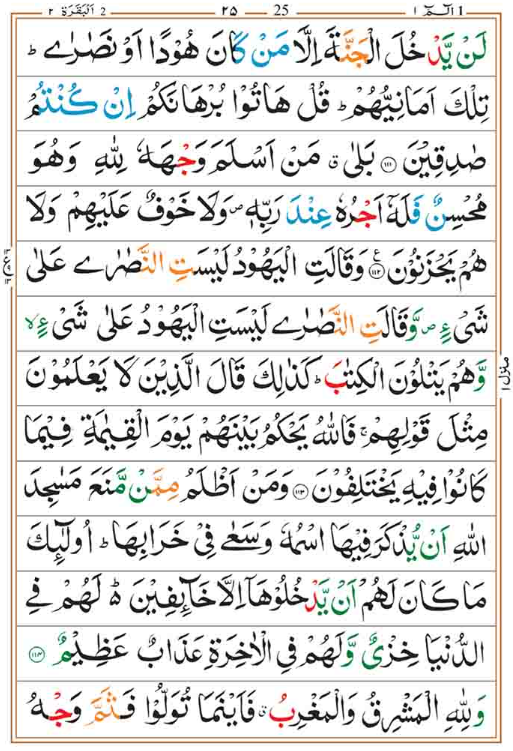 الٓمّٓ ١ 1 25 ٢٥ اَلْبَقَرَة ٢ 2
لَنْ يَّدْخُلَ الْجَنَّةَ اِلَّا مَنْ كَانَ هُوْدًا اَوْ نَصٰرٰى ؕ
تِلْكَ اَمَانِيُّهُمْ ؕ قُلْ هَاتُوْا بُرْهَانَكُمْ اِنْ كُنْتُمْ
صٰدِقِيْنَ ﴿۱۱۱﴾ بَلٰى ۗ مَنْ اَسْلَمَ وَجْهَهٗ لِلّٰهِ وَهُوَ
مُحْسِنٌ فَلَهٗۤ اَجْرُهٗ عِنْدَ رَبِّهٖ ۪ وَلَا خَوْفٌ عَلَيْهِمْ وَلَا
هُمْ يَحْزَنُوْنَ ﴿۱۱۲﴾ وَقَالَتِ الْيَهُوْدُ لَيْسَتِ النَّصٰرٰى عَلٰى
شَىْءٍ ۪ وَّقَالَتِ النَّصٰرٰى لَيْسَتِ الْيَهُوْدُ عَلٰى شَىْءٍ ۙ
وَّهُمْ يَتْلُوْنَ الْكِتٰبَ ؕ كَذٰلِكَ قَالَ الَّذِيْنَ لَا يَعْلَمُوْنَ
مِثْلَ قَوْلِهِمْ ۚ فَاللّٰهُ يَحْكُمُ بَيْنَهُمْ يَوْمَ الْقِيٰمَةِ فِيْمَا
كَانُوْا فِيْهِ يَخْتَلِفُوْنَ ﴿۱۱۳﴾ وَمَنْ اَظْلَمُ مِمَّنْ مَّنَعَ مَسٰجِدَ
اللّٰهِ اَنْ يُّذْكَرَ فِيْهَا اسْمُهٗ وَسَعٰى فِىْ خَرَابِهَا ؕ اُولٰٓئِكَ
مَا كَانَ لَهُمْ اَنْ يَّدْخُلُوْهَاۤ اِلَّا خَآئِفِيْنَ ؕ لَهُمْ فِى
الدُّنْيَا خِزْىٌ وَّلَهُمْ فِى الْاٰخِرَةِ عَذَابٌ عَظِيْمٌ ﴿۱۱۴﴾
وَلِلّٰهِ الْمَشْرِقُ وَالْمَغْرِبُ ۗ فَاَيْنَمَا تُوَلُّوْا فَثَمَّ وَجْهُ
منزل ١